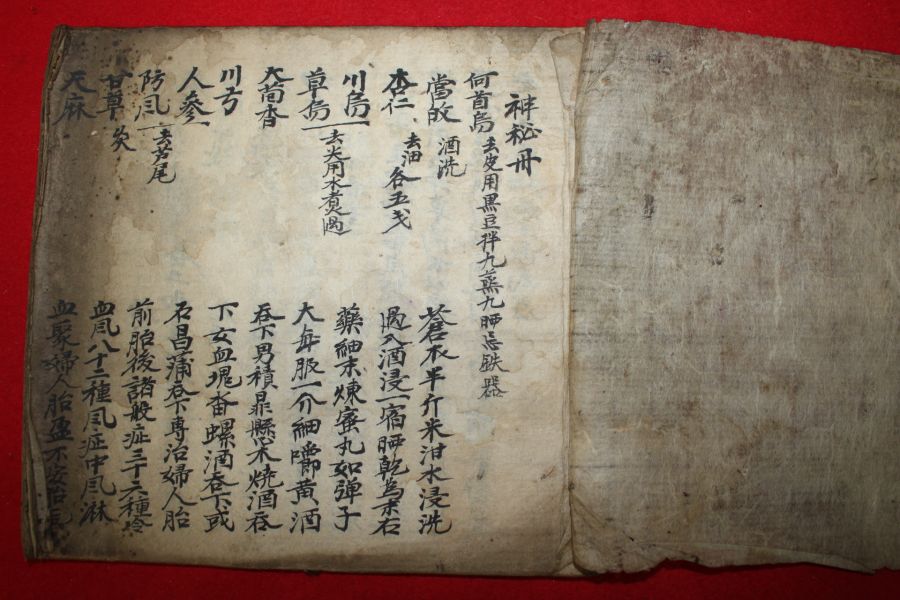 神秘丹
何首烏 去皮用黑豆拌九蒸九晒忌鉄器
當 酒洗 蒼朮半斤米泔水浸洗
杏仁 去油各五戔 過又酒浸一宿晒乾為末右
川烏 藥細末煉蜜丸如彈子
草烏 去尖用水煮過 大每服一介細嚼黃酒
大茴香 吞下男積 燒酒吞
川芎 下女血塊香螺酒吞下或
人參 石昌蒲吞下專治婦人胎
防風 去芦尾 前胎後諸般症三十六種冷
甘草 炙 血風八十二種風症中風淋
天麻 血聚婦人胎盈不安治